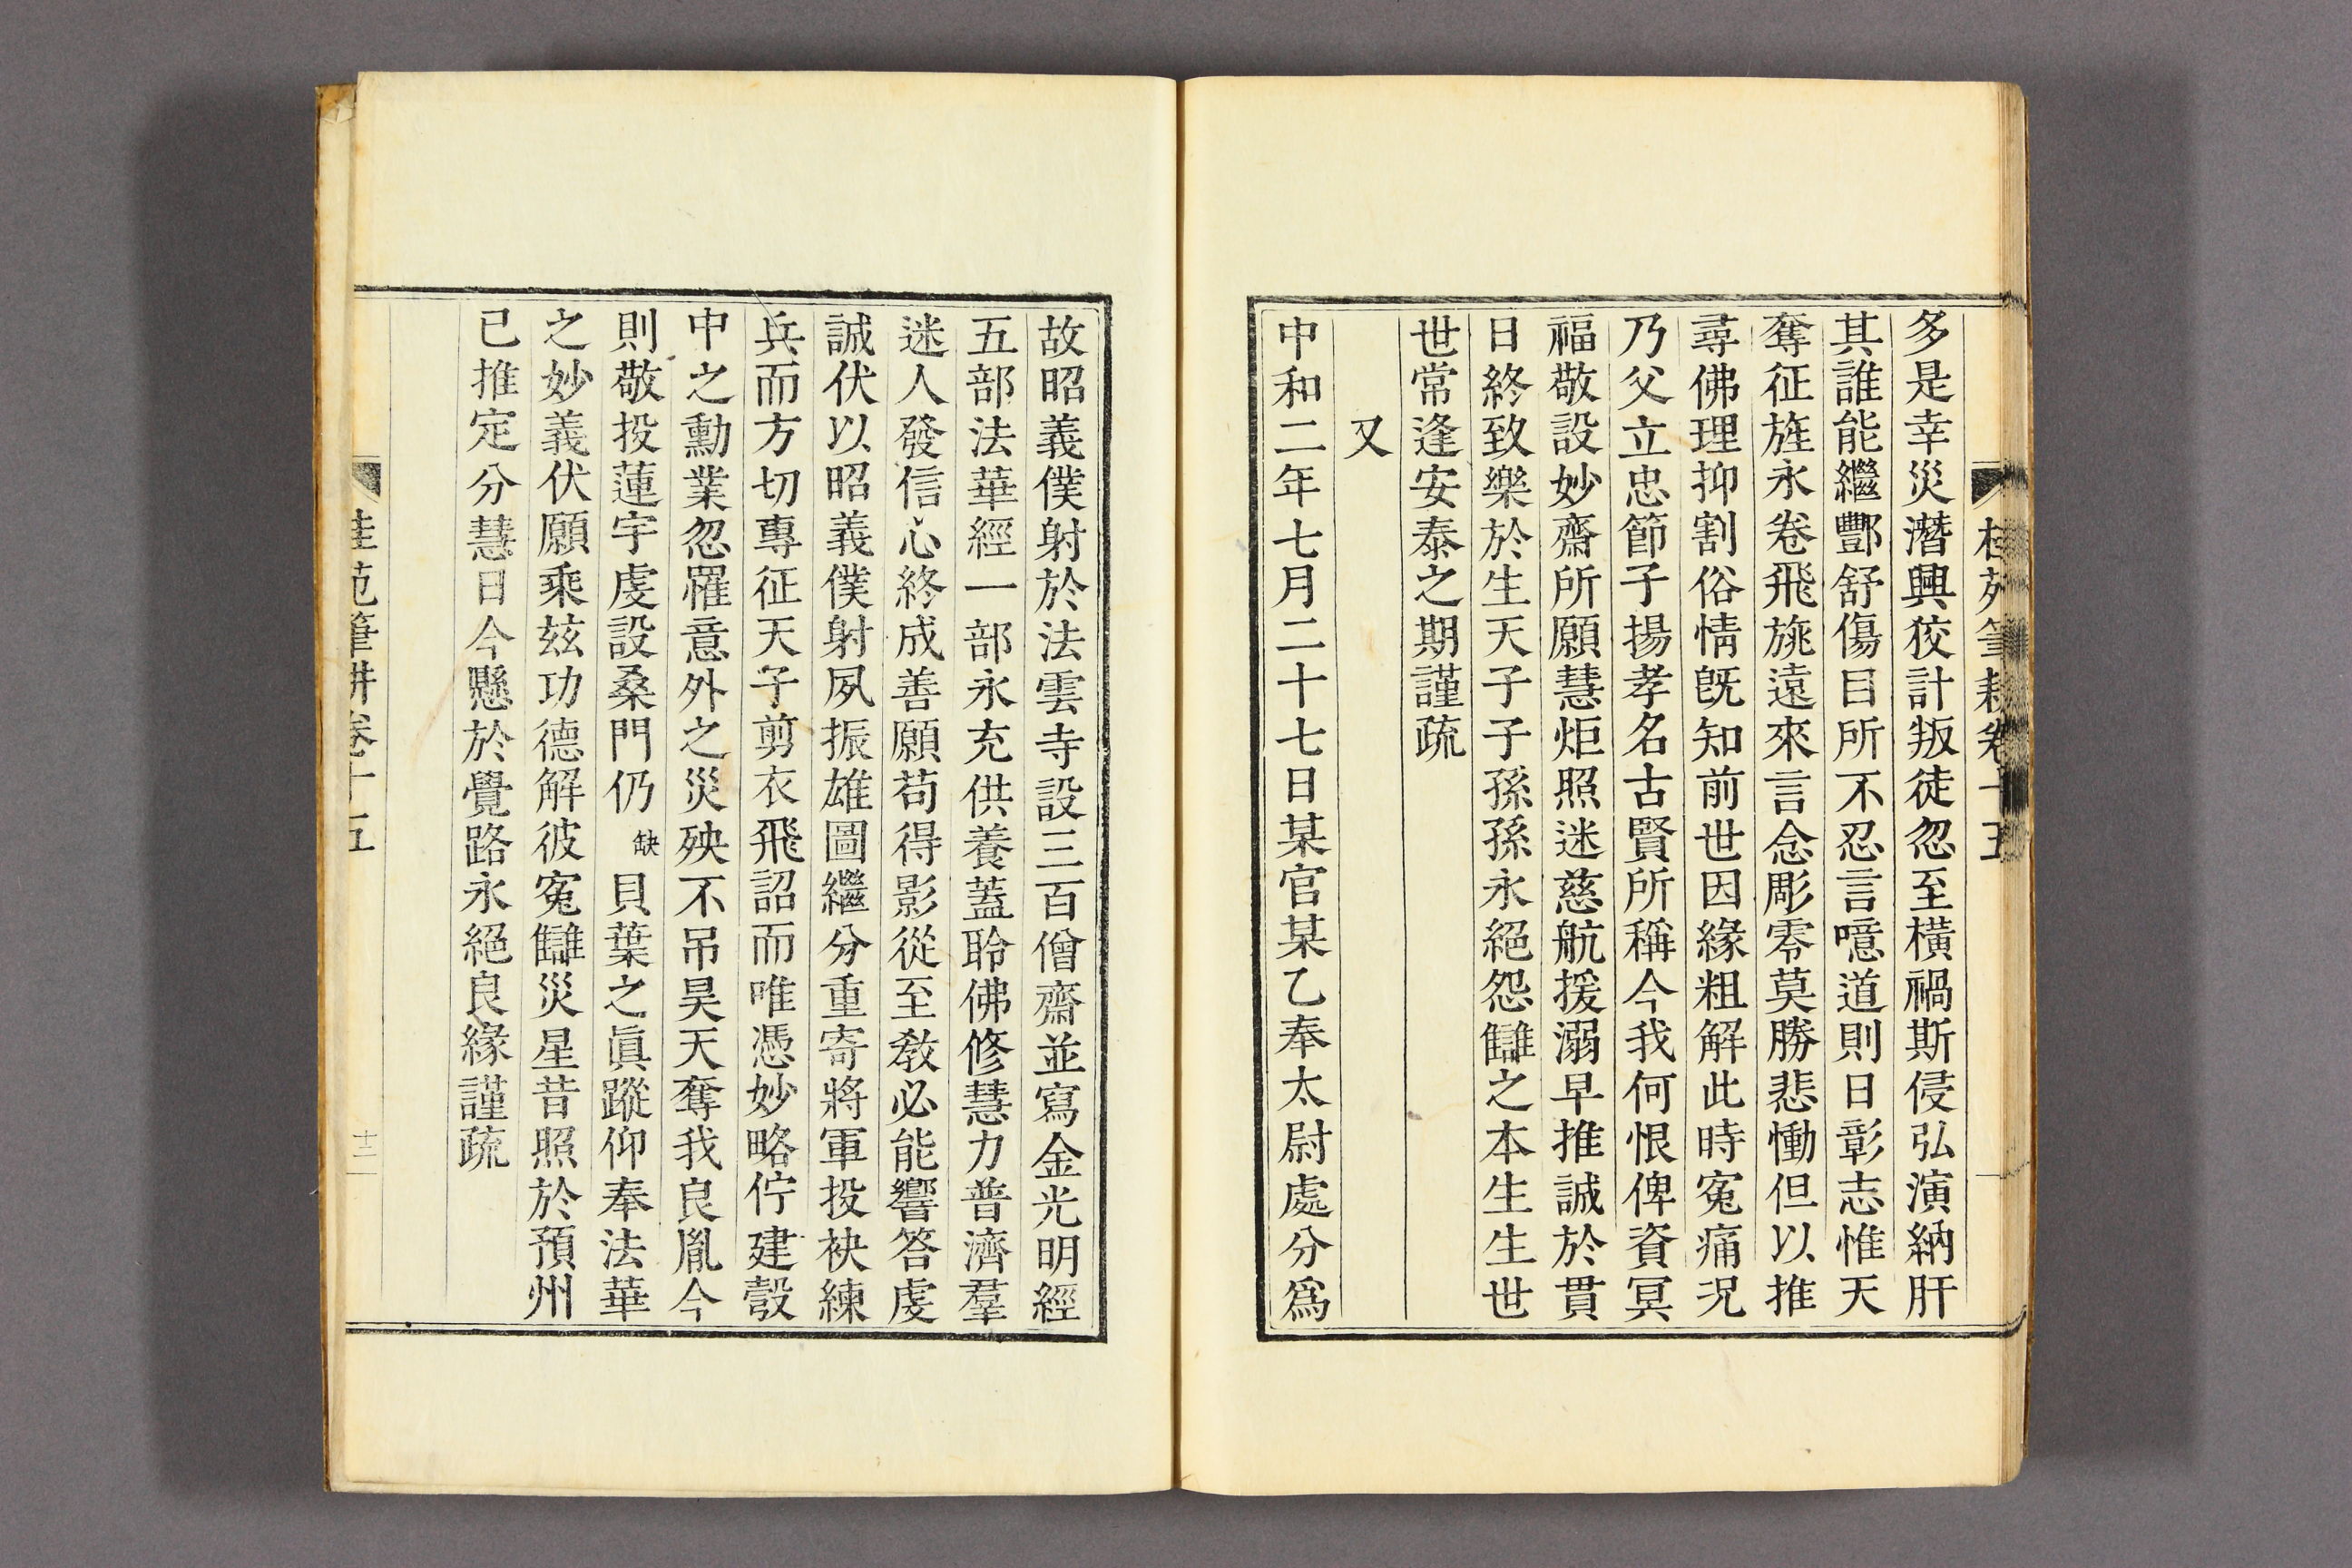 桂苑筆耕卷十五
多是幸災潛興狡計叛徒忽至橫禍斯侵弘演納肝
其誰能繼酆舒傷目所不忍言噫道則日彰志惟天
奪征旌永卷飛旐遠來言念彫零莫勝悲慟但以推
尋佛理抑割俗情旣知前世因緣粗解此時寃痛況
乃父立忠節子揚孝名古賢所稱今我何恨俾資冥
福敬設妙齋所願慧炬照迷慈航援溺早推誠於貫
日終致樂於生天子子孫孫永絕怨讎之本生生世
世常逢安泰之期謹疏
又
中和二年七月二十七日某官某乙奉太尉處分爲
故昭義僕射於法雲寺設三百僧齋並寫金光明經
五部法華經一部永充供養蓋聆佛修慧力普濟羣
迷人發信心終成善願苟得影從至敎必能響答虔
誠伏以昭義僕射夙振雄圖繼分重寄將軍投袂練
兵而方切專征天子剪衣飛詔而唯憑妙略佇建彀
中之勳業忽罹意外之災殃不吊昊天奪我良胤今
則敬投蓮宇虔設桑門仍缺貝葉之眞蹤仰奉法華
之妙義伏願乘玆功德解彼寃讎災星昔照於預州
已推定分慧日今懸於覺路永絕良緣謹疏
桂苑筆耕卷十五
十二